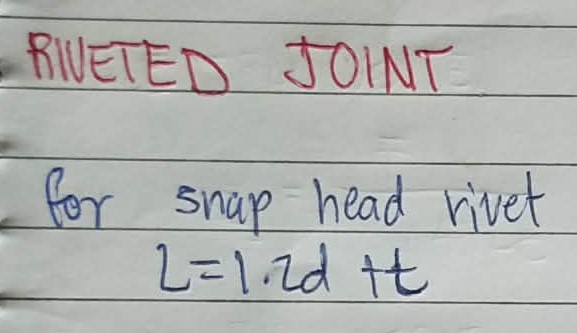 RIVETED JOINT
for snap head rivet
L=1.2d +t